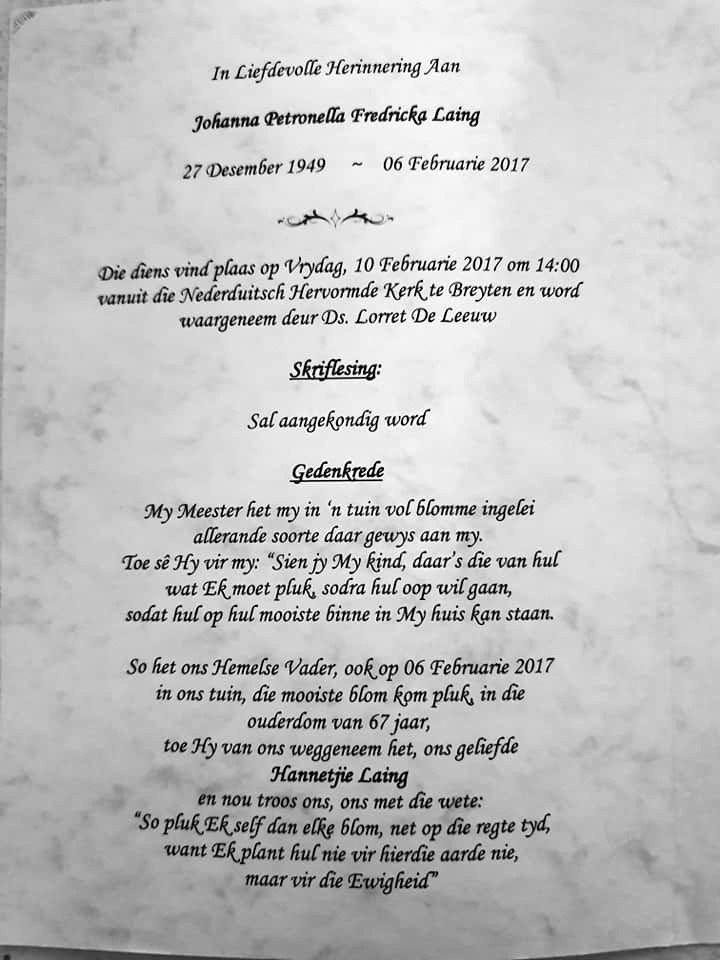 In Liefdevolle Herinnering Aan
Johanna Petronella Fredricka Laing
27 Desember 1949 ~ 06 Februarie 2017
Die diens vind plaas op Vrydag, 10 Februarie 2017 om 14:00
vanuit die Nederduitsch Hervormde Kerk te Breyten en word
waargeneem deur Ds. Lorret De Leeuw
Skriflesing:
Sal aangekondig word
Gedenkrede
My Meester het my in ‘n tuin vol blomme ingelei
allerande soorte daar gewys aan my.
Toe sê Hy vir my: “Sien jy My kind, daar’s die van hul
wat Ek moet pluk, sodra hul oop wil gaan,
sodat hul op hul mooiste binne in My huis kan staan.
So het ons Hemelse Vader, ook op 06 Februarie 2017
in ons tuin, die mooiste blom kom pluk, in die
ouderdom van 67 jaar,
toe Hy van ons weggeneem het, ons geliefde
Hannetjie Laing
en nou troos ons, ons met die wete:
“So pluk Ek self dan elke blom, net op die regte tyd,
want Ek plant hul nie vir hierdie aarde nie,
maar vir die Ewigheid”